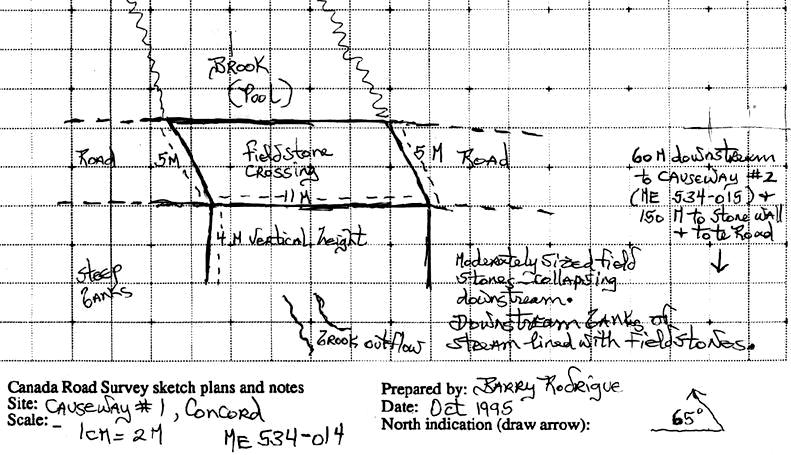 BROOK
(POOL)
ROAD
.5M
fieldstone
CROSSING
11 M
5 M
ROAD
60 M downstream
to CAUSEWAY #2
(ME 534-015) +
150 M to Stone wall
+ tote Road
4 M Vertical height
steep
BANKS
Moderately sized field
stones - collapsing
downstream.
Downstream BANKS of
stream lined with fieldstones.
BROOK outflow
Canada Road Survey sketch plans and notes
Site: CAUSEWAY #1, CONCORD
Scale:
1CM = 2 M
ME 534-014
Prepared by: BARRY Rodrigue
Date: Oct 1995
North indication (draw arrow):
65°